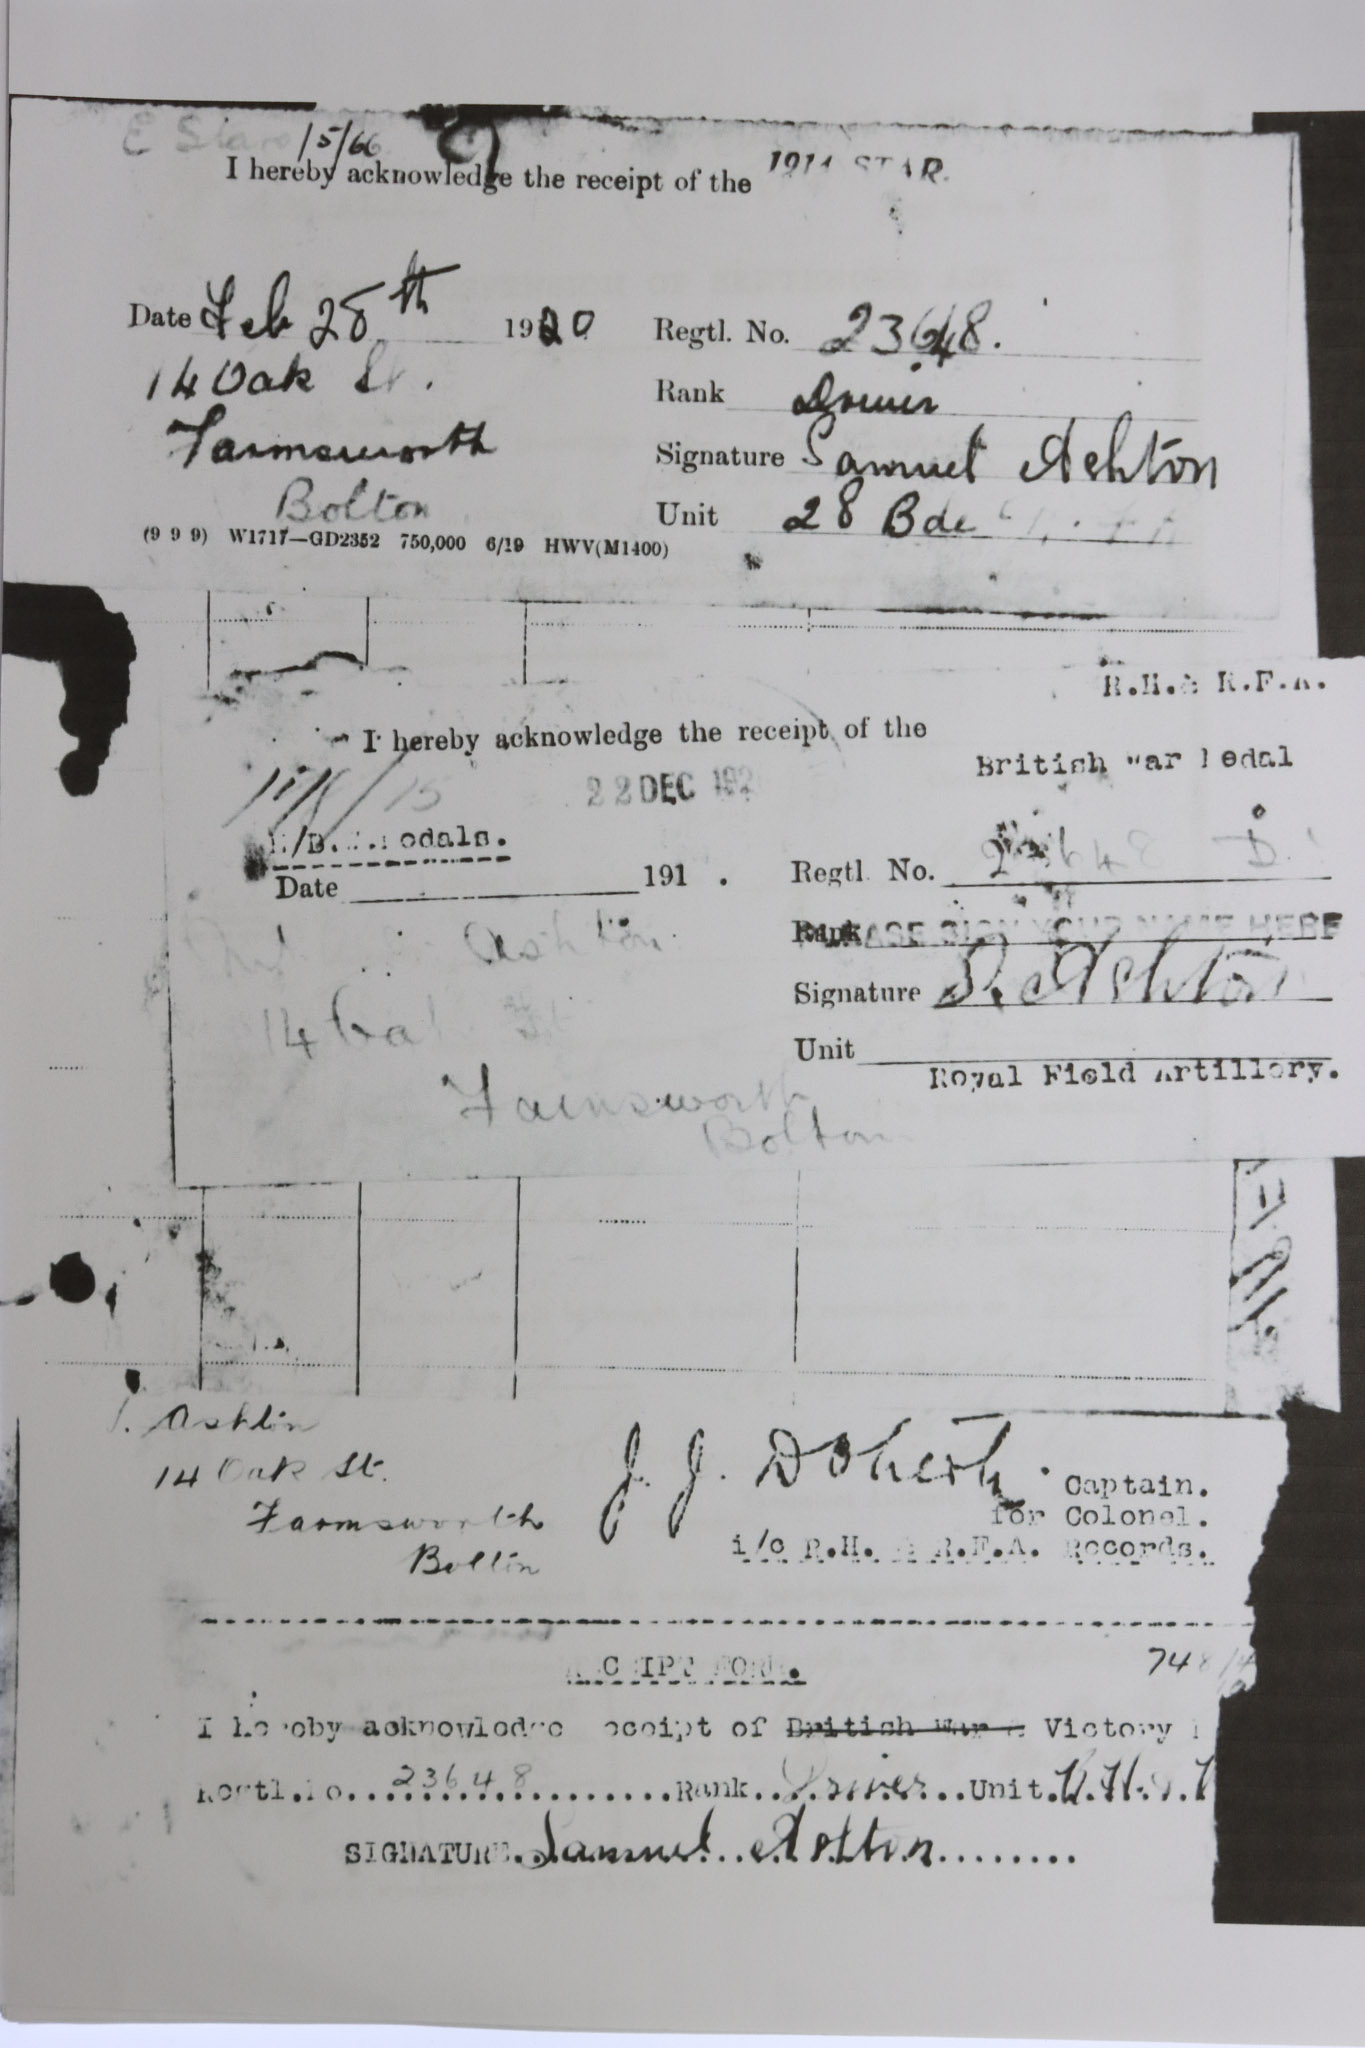 E Star
/5/66
I hereby acknowledge the receipt of the 1914 STAR.
Date Feb 28th 1920 Regtl. No. 23648.
14 Oak St.
Rank Driver
Farmsworth
Signature Samuel Ashton
Bolton
Unit 28 Bde
(9 9 9) W1717—GD2352 750,000 6/19 HWV(M1400)
R.H.& R.F.A.
I hereby acknowledge the receipt of the
British War Medal
22 DEC 192
Medals.
Date 191 . Regtl. No. 23648 D
Rank PLEASE SIGN YOUR NAME HERE
Ashton
Signature S. Ashton
14 Oak St
Unit
Royal Field Artillery.
Farnsworth
Bolton
Ashton
14 Oak St.
Farmsworth
Bolton
J. J. Doherty. Captain.
for Colonel.
i/c R.H. & R.F.A. Records.
RECEIPT FORM.
748
I hereby acknowledge receipt of British War & Victory
Regtl.No. 23648 Rank Driver Unit. R.H.&.
SIGNATURE. Samuel Ashton